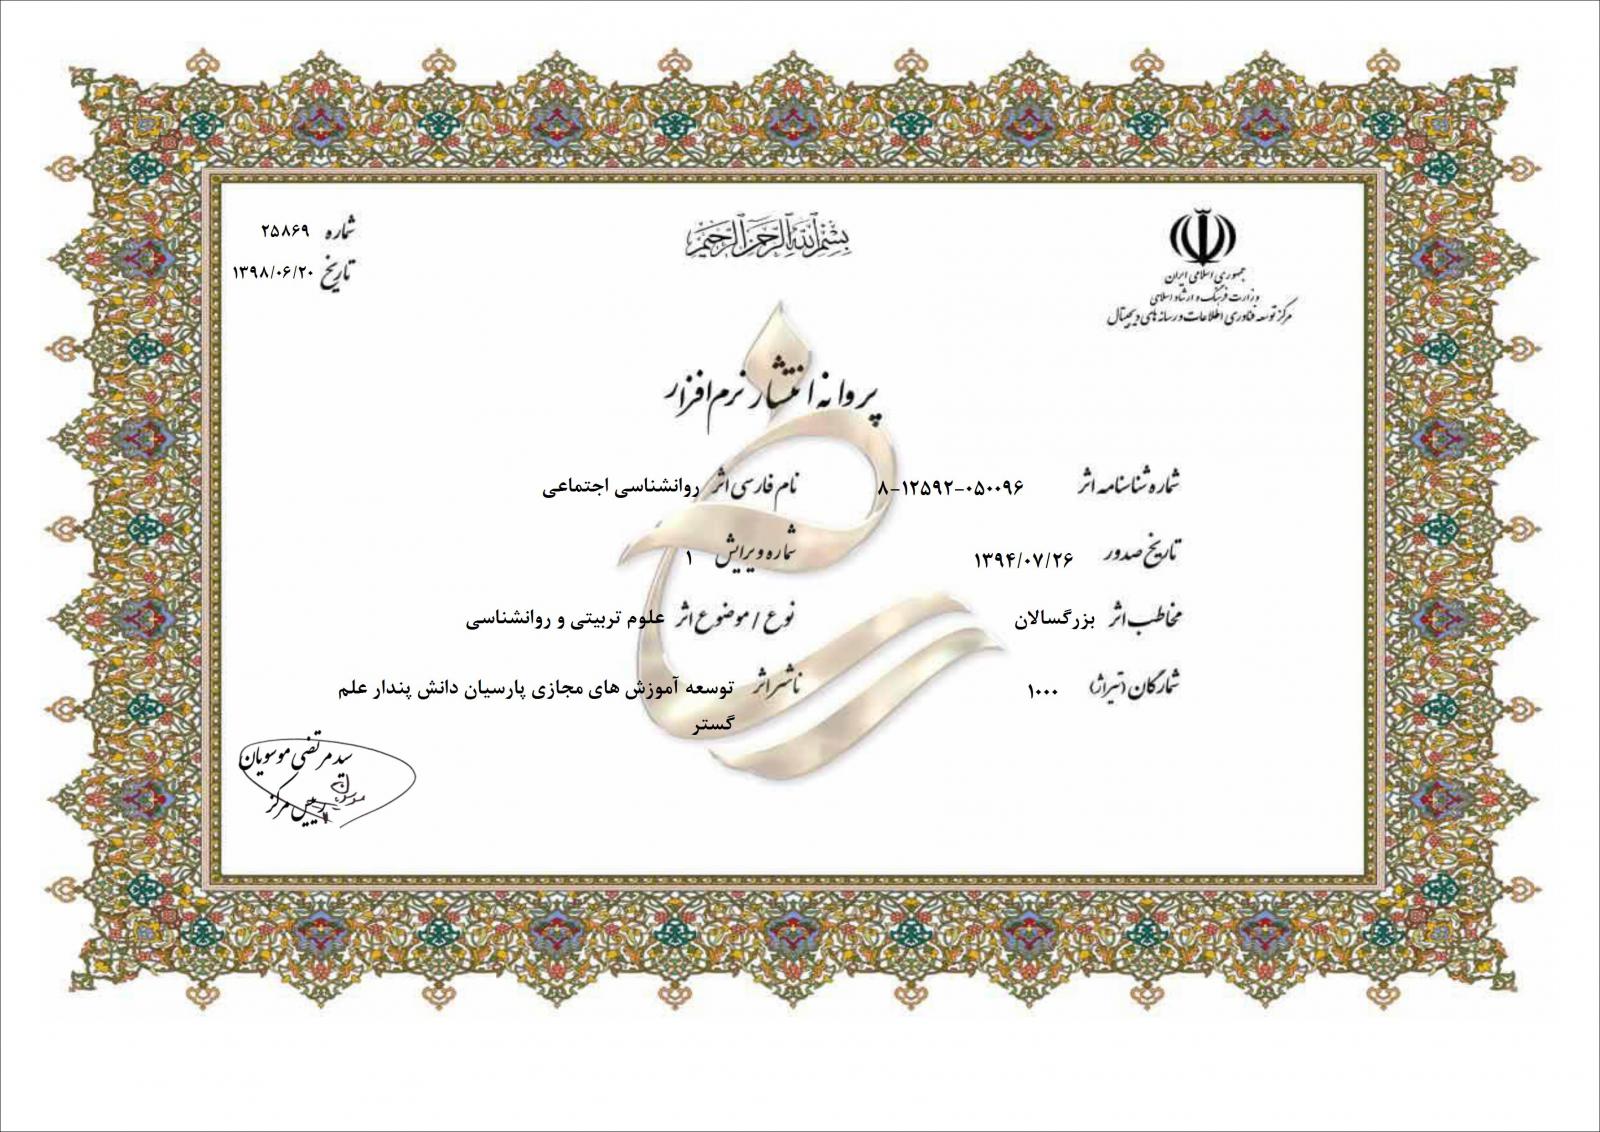 بسم الله الرحمن الرحیم
جمهوری اسلامی ایران
وزارت فرهنگ و ارشاد اسلامی
مرکز توسعه فناوری اطلاعات و رسانه های دیجیتال
شماره ۲۵۸۶۹
تاریخ ۱۳۹۸/۰۶/۲۰
پروانه انتشار نرم افزار
شماره شناسنامه اثر ۸-۱۲۵۹۲-۰۵۰۰۹۶
نام فارسی اثر روانشناسی اجتماعی
تاریخ صدور ۱۳۹۴/۰۷/۲۶
شماره ویرایش ۱
مخاطب اثر بزرگسالان
نوع / موضوع اثر علوم تربیتی و روانشناسی
شمارگان (تیراژ) ۱۰۰۰
ناشر اثر توسعه آموزش های مجازی پارسیان دانش پندار علم
گستر
سید مرتضی موسویان
رییس مرکز